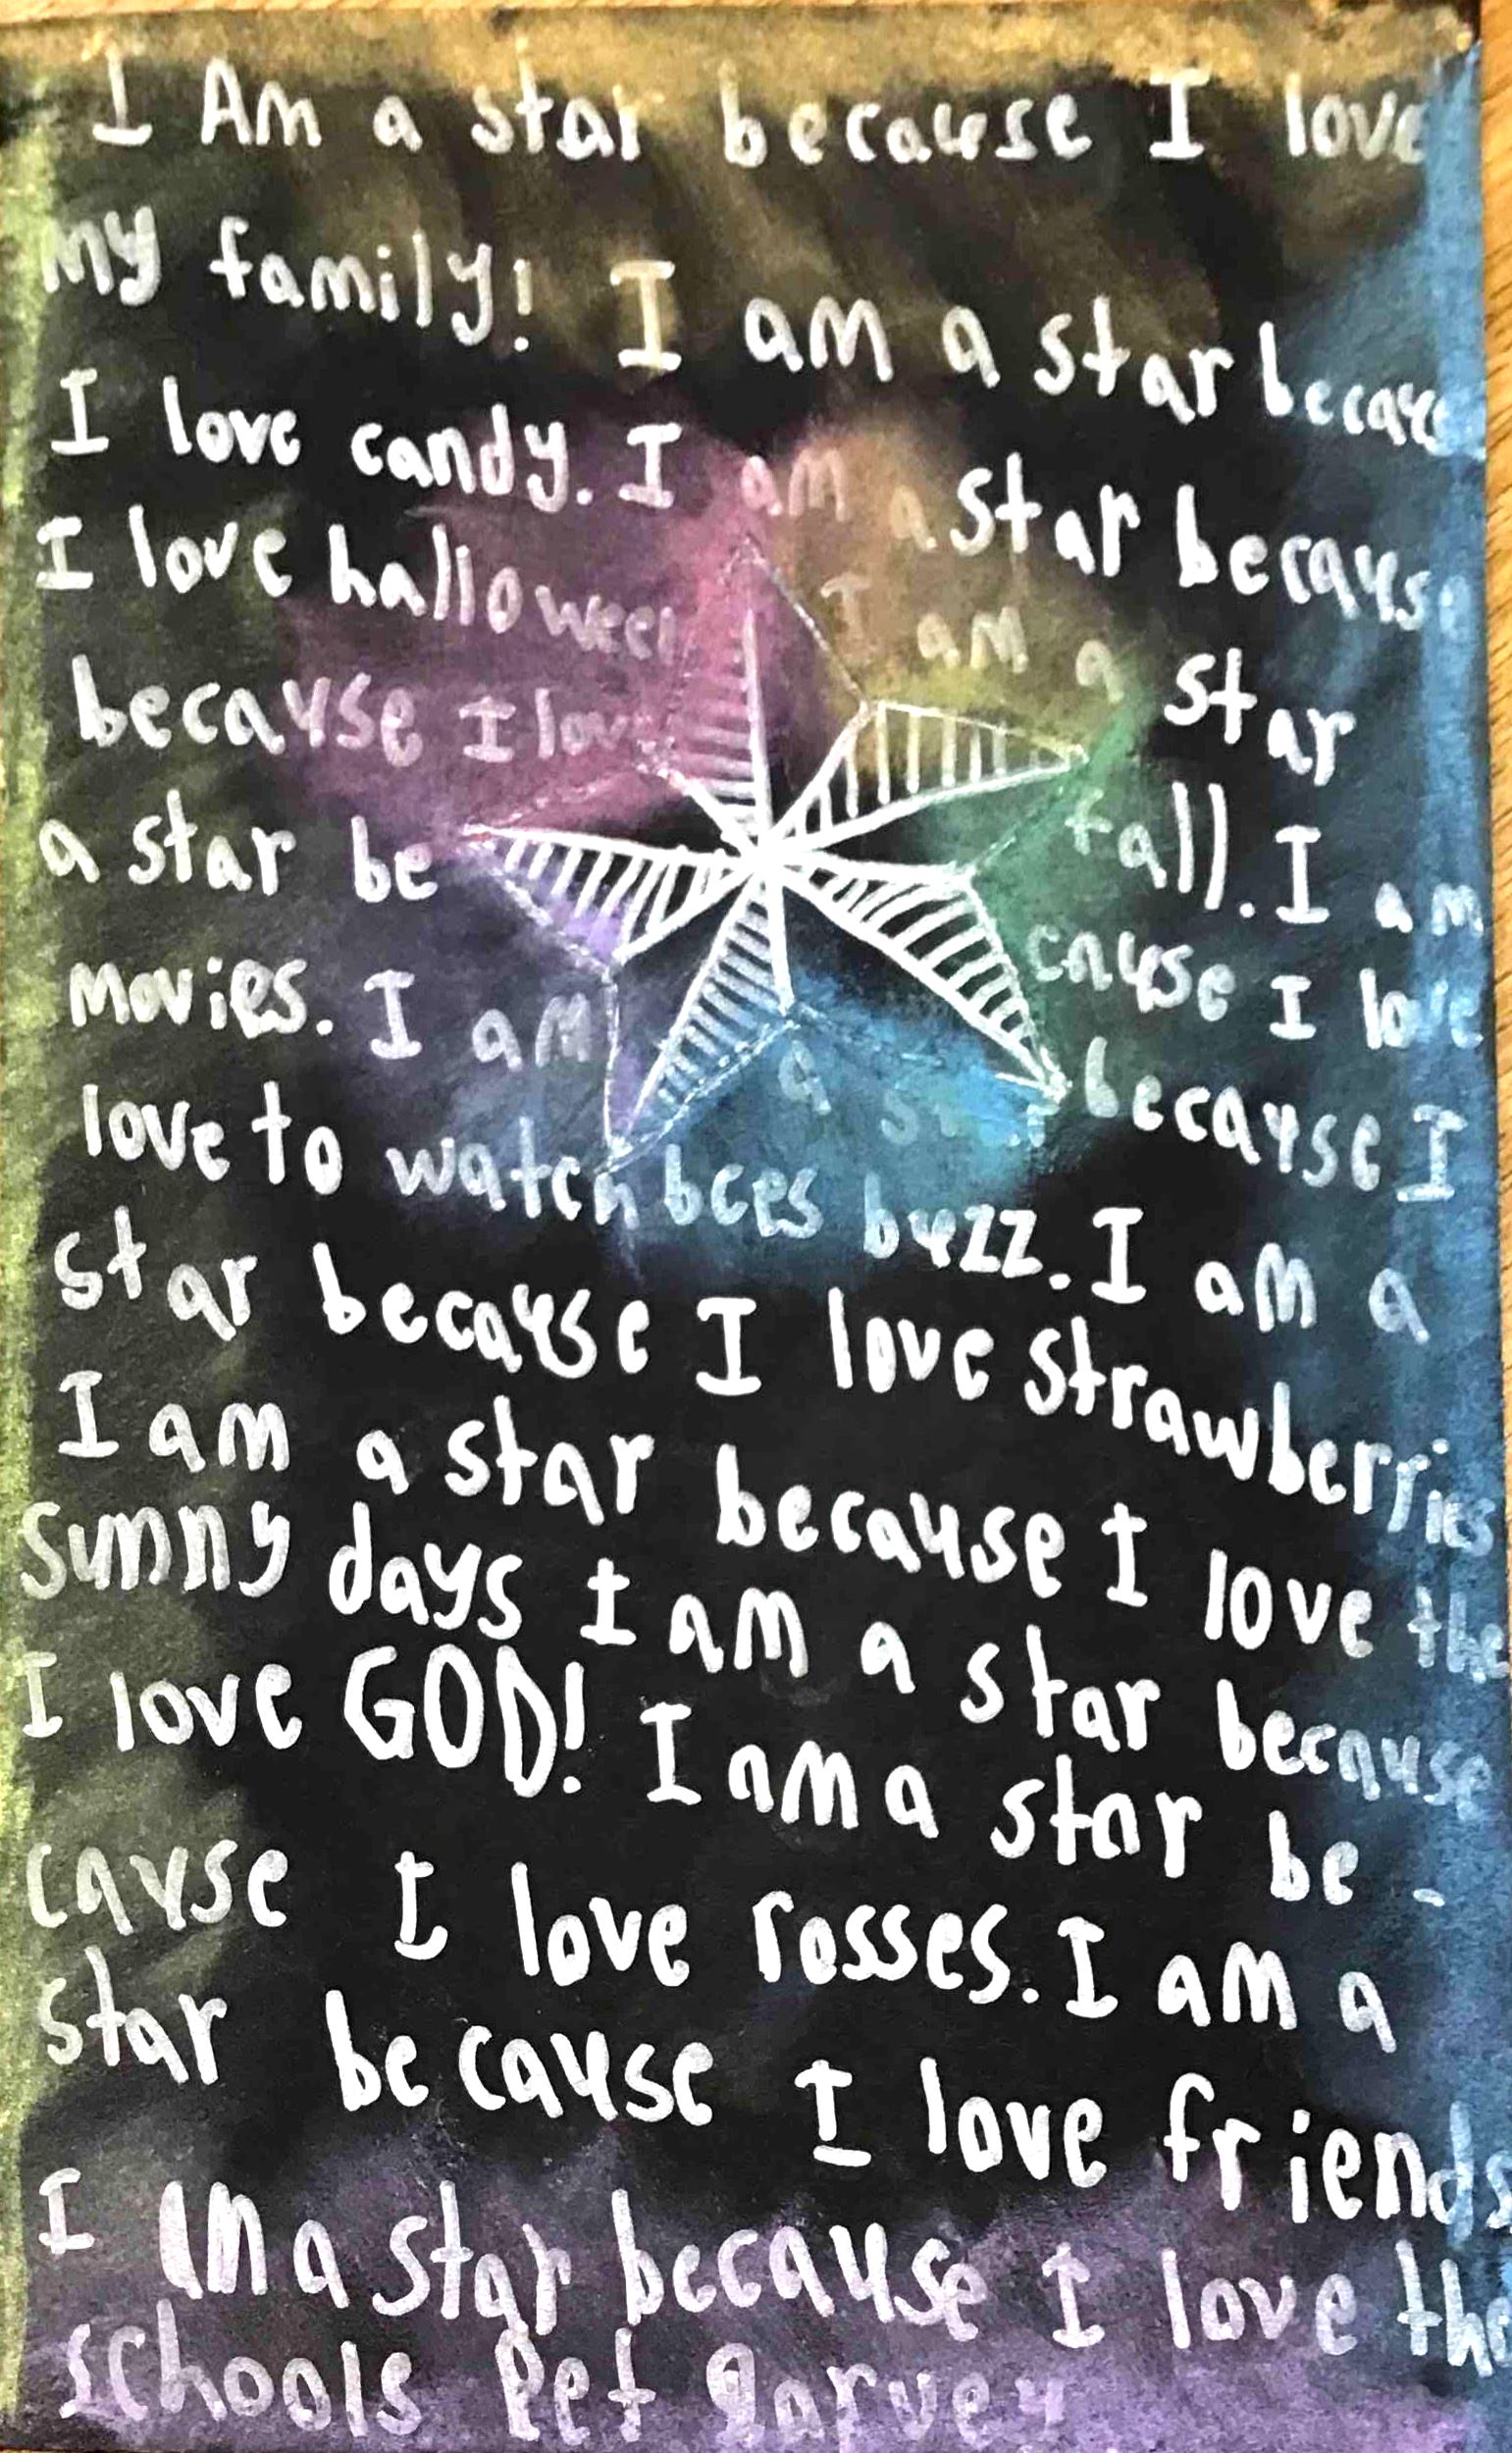 I Am a star because I love
my family! I am a star because
I love candy. I am a star because
I love halloween I am a star
because I love fall. I am
a star be cause I love
movies. I am a star because I
love to watch bees buzz. I am a
star because I love strawberries
I am a star because I love the
sunny days I am a star because
I love GOD! I am a star be-
cause I love rosses. I am a
star because I love friends
I am a star because I love the
schools Pet garvey